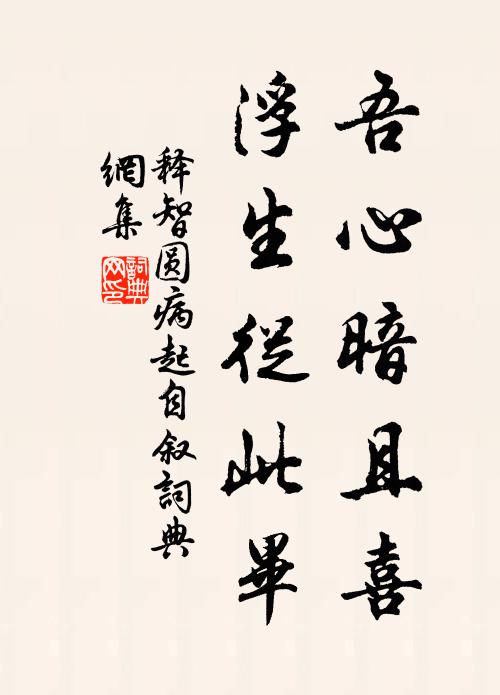 吾心暗且喜
浮生從此畢
释智圆病起自叙詞典
網集
詞典
网印